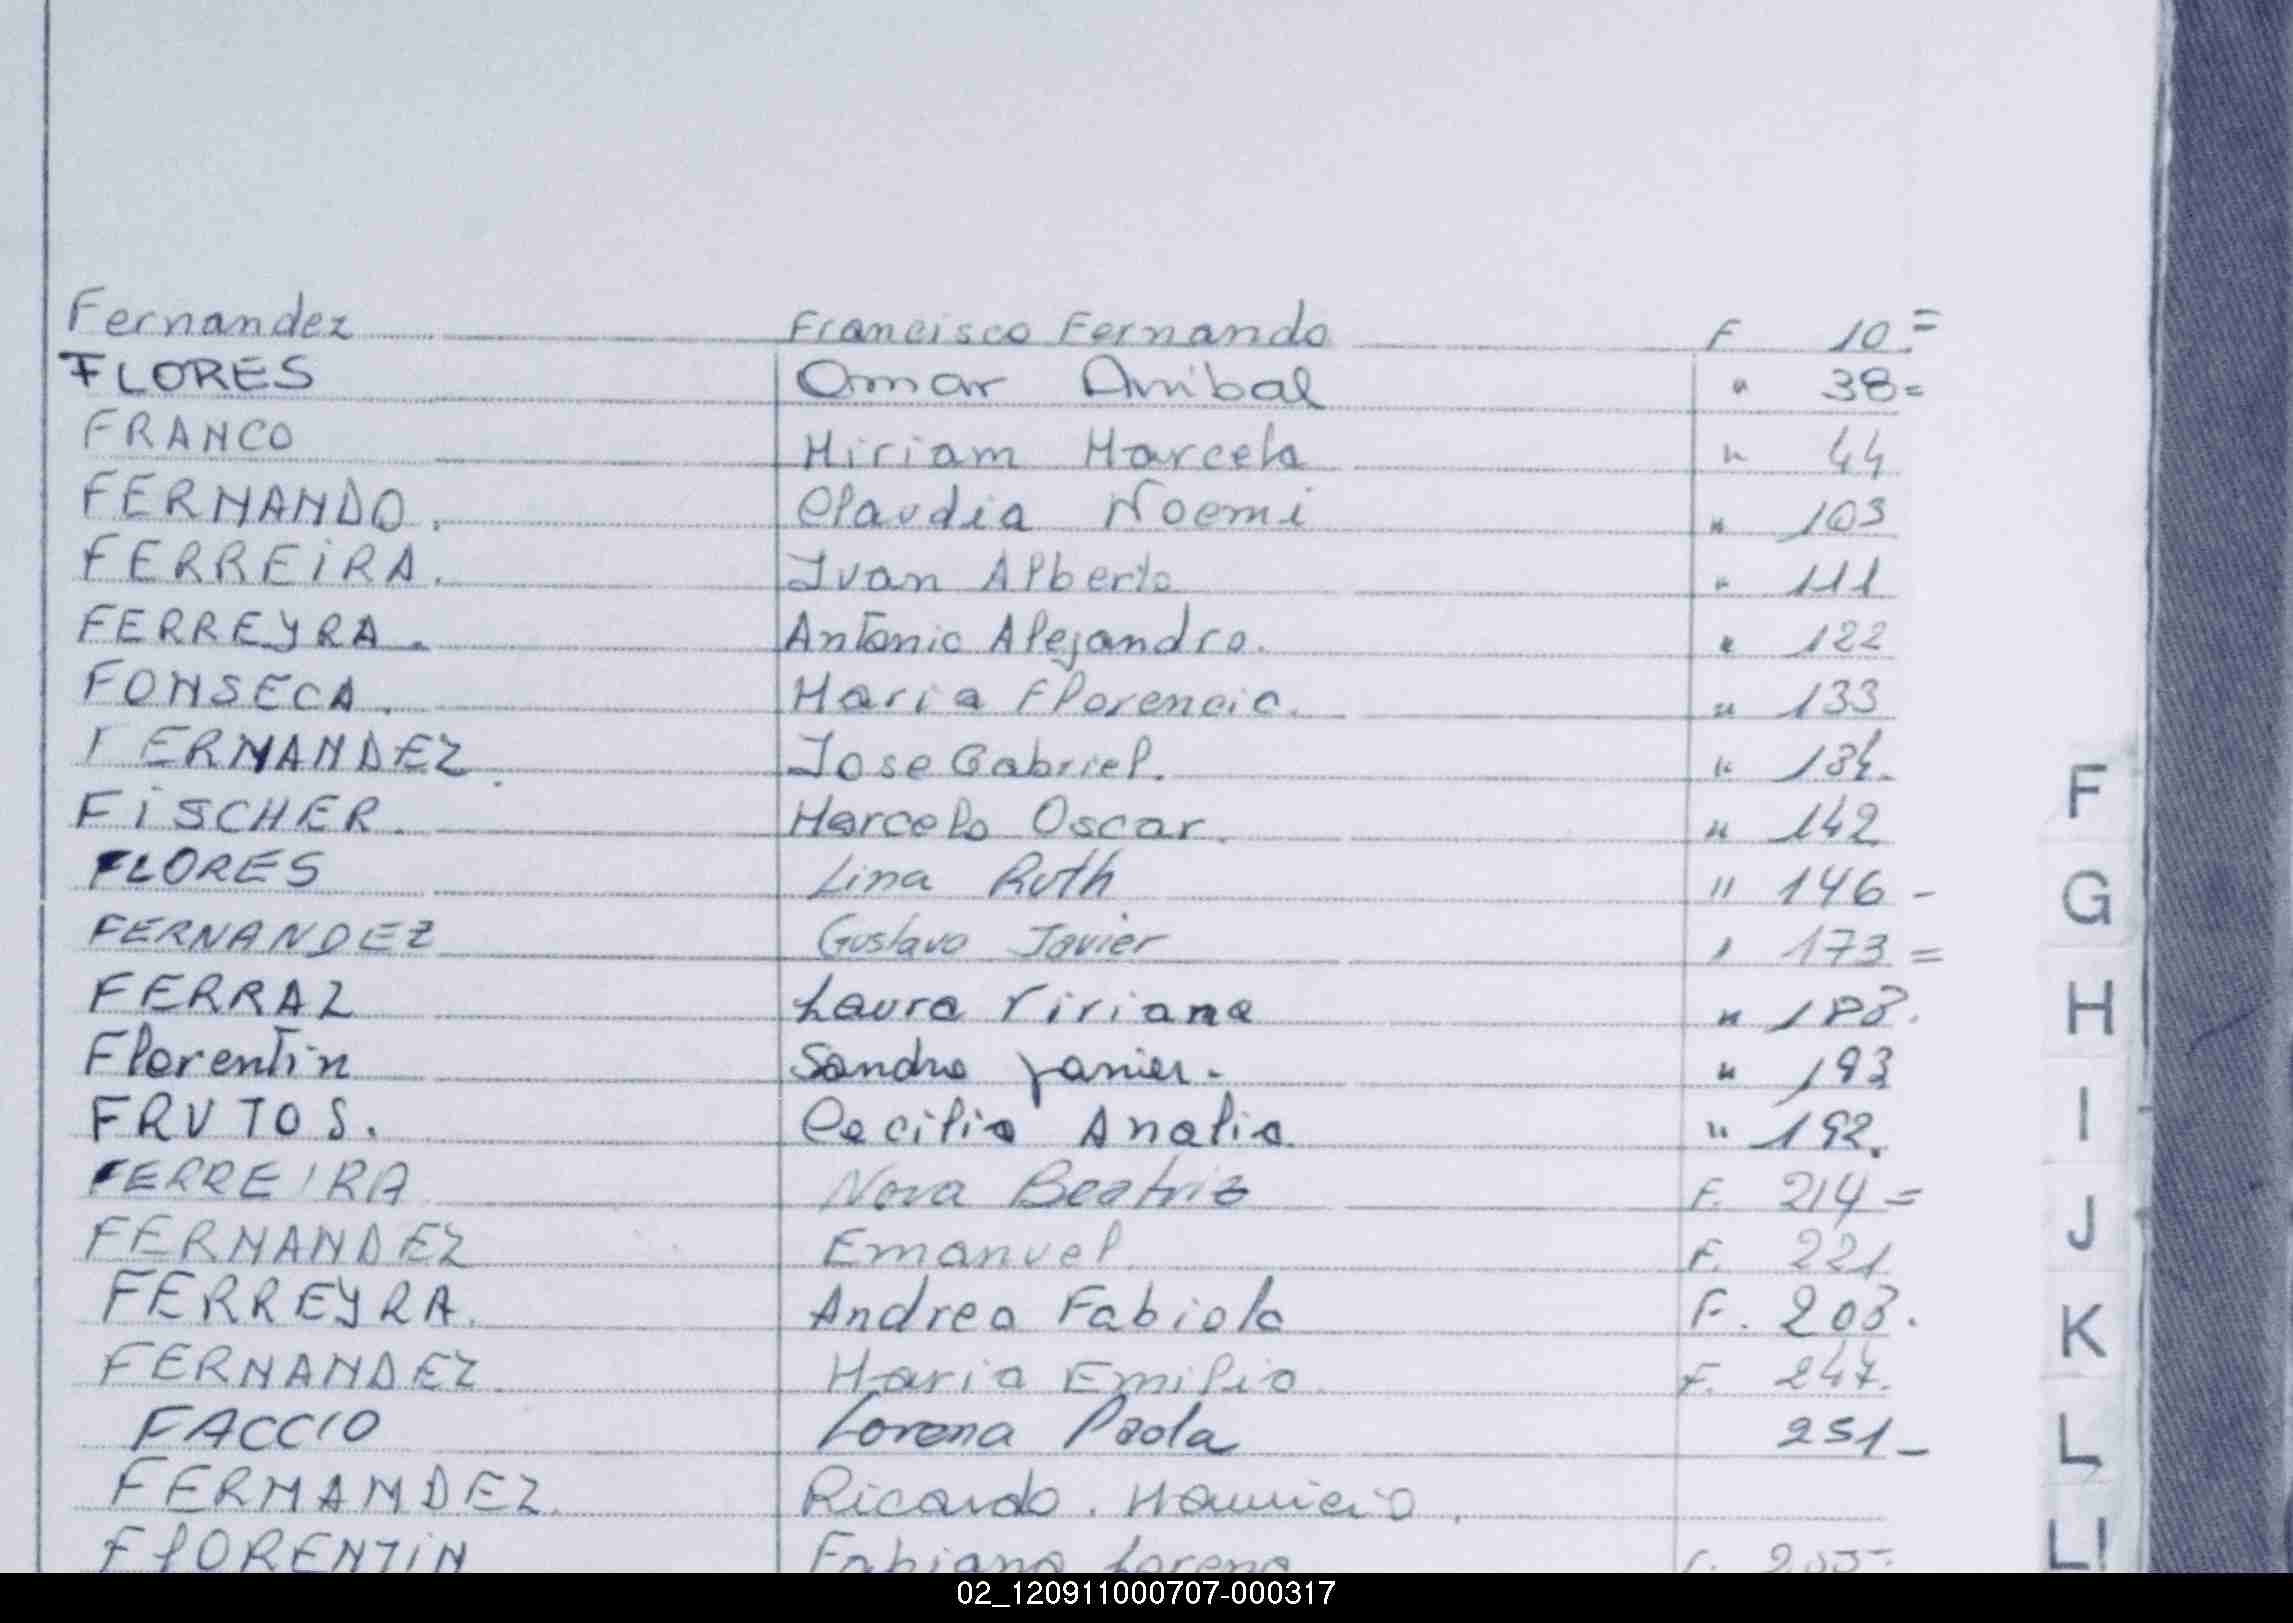 Fernandez Francisco Fernando F 10 =
FLORES Omar Anibal " 38 =
FRANCO Miriam Marcela " 44
FERNANDO. Claudia Noemi " 103
FERREIRA. Ivan Alberto " 111
FERREYRA. Antonio Alejandro. " 122
FONSECA. Maria Florencia. " 133
FERNANDEZ. Jose Gabriel. " 134.
FISCHER. Marcelo Oscar. " 142
FLORES Lina Ruth " 146 -
FERNANDEZ Gustavo Javier " 173 =
FERRAZ Laura Viviana "
Florentin Sandro Javier. " 193
FRUTOS. Cecilia Analia. " 192.
F
FERREIRA Nora Beatriz F. 214 =
G
FERNANDEZ Emanuel F. 221
H
FERREYRA. Andrea Fabiola F. 203.
I
FERNANDEZ. Maria Emilia F. 247.
J
FACCIO Lorena Paola 251 -
K
FERNANDEZ. Ricardo. Mauricio.
L
FLORENTIN Fabiana Lorena
Ll
02_120911000707-000317